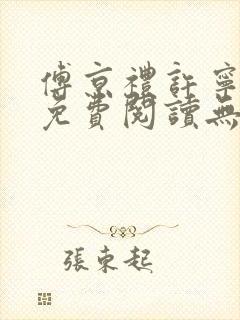 傅京禮許寧
免費閱讀無
張東起